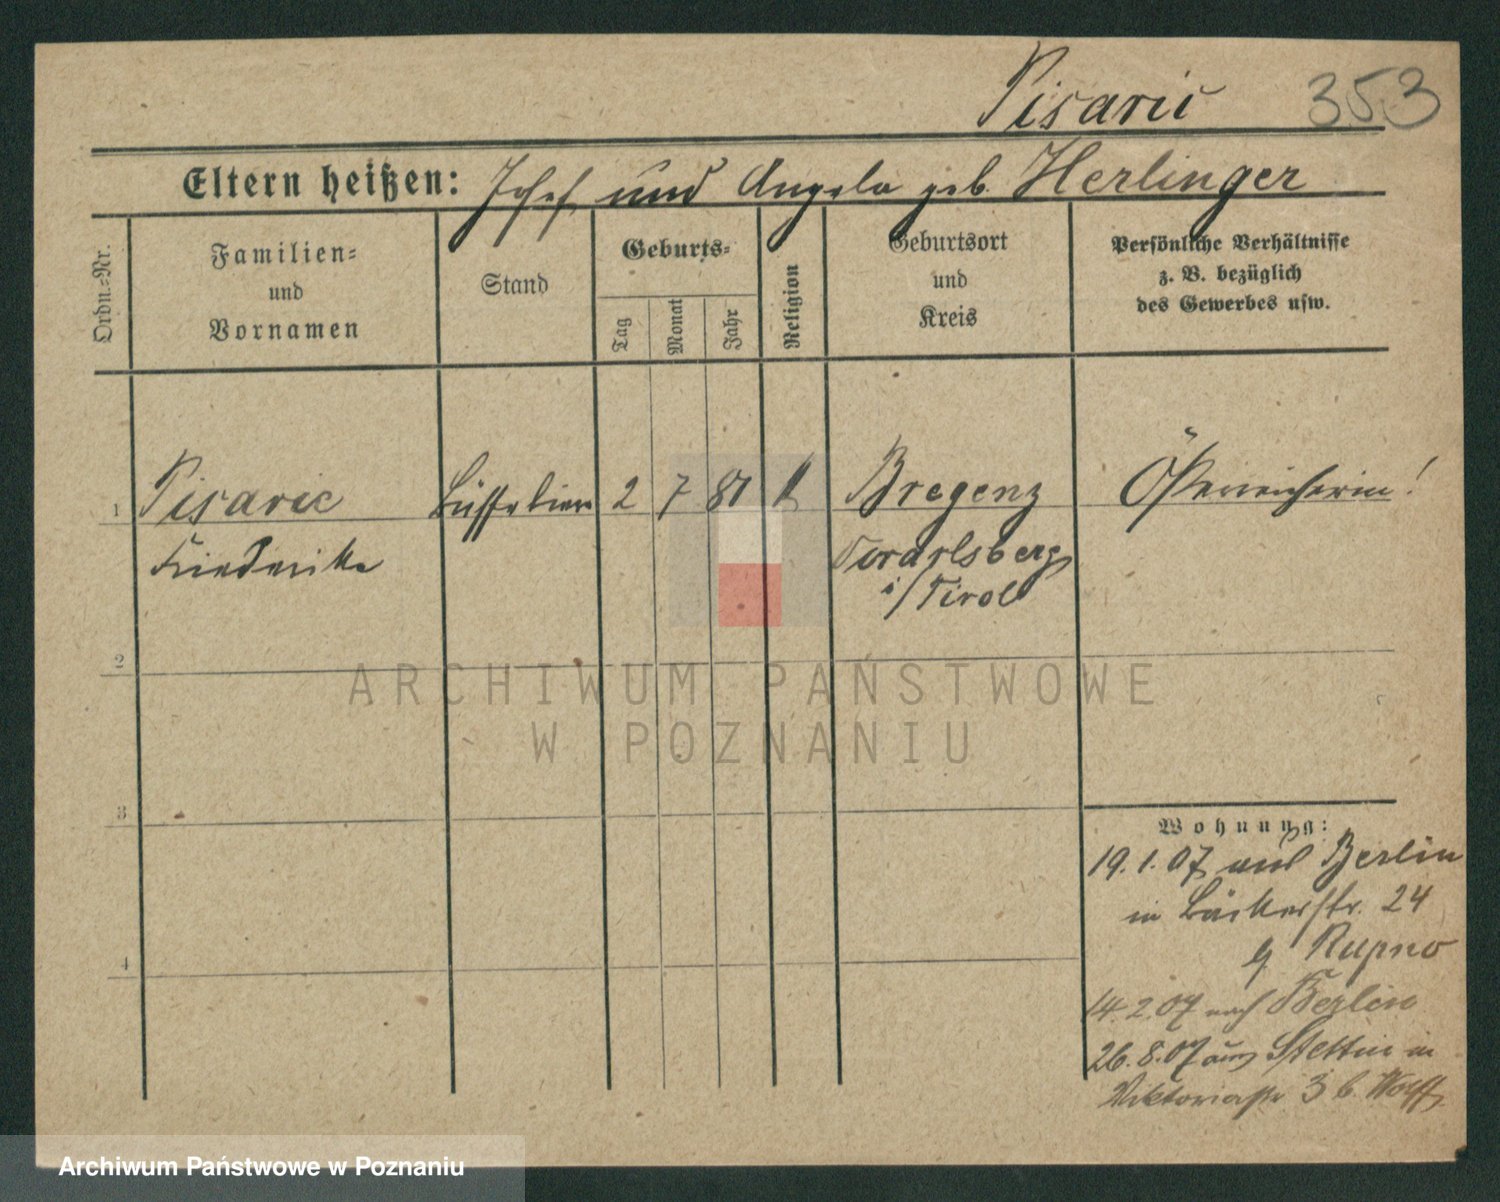 Pisaric 353
Eltern heißen: Josef und Angela geb. Herlinger
Ordn.=Nr.
Familien=
und
Vornamen
Stand
Geburts=
Tag
Monat
Jahr
Religion
Geburtsort
und
Kreis
Persönliche Verhältnisse
z. B. bezüglich
des Gewerbes usw.
1 Pisaric Büffetiere 2 7 81 Bregenz Österreicherin!
Friederike Vorarlsberg
i/Tirol
2
3
4
Wohnung:
19.1.07 aus Berlin
in Bäckerstr. 24
Rupno
14.2.07 nach Berlin
26.8.07 aus Stettin in
Viktoriastr 3 b. Wolff
ARCHIWUM PAŃSTWOWE
W POZNANIU
Archiwum Państwowe w Poznaniu